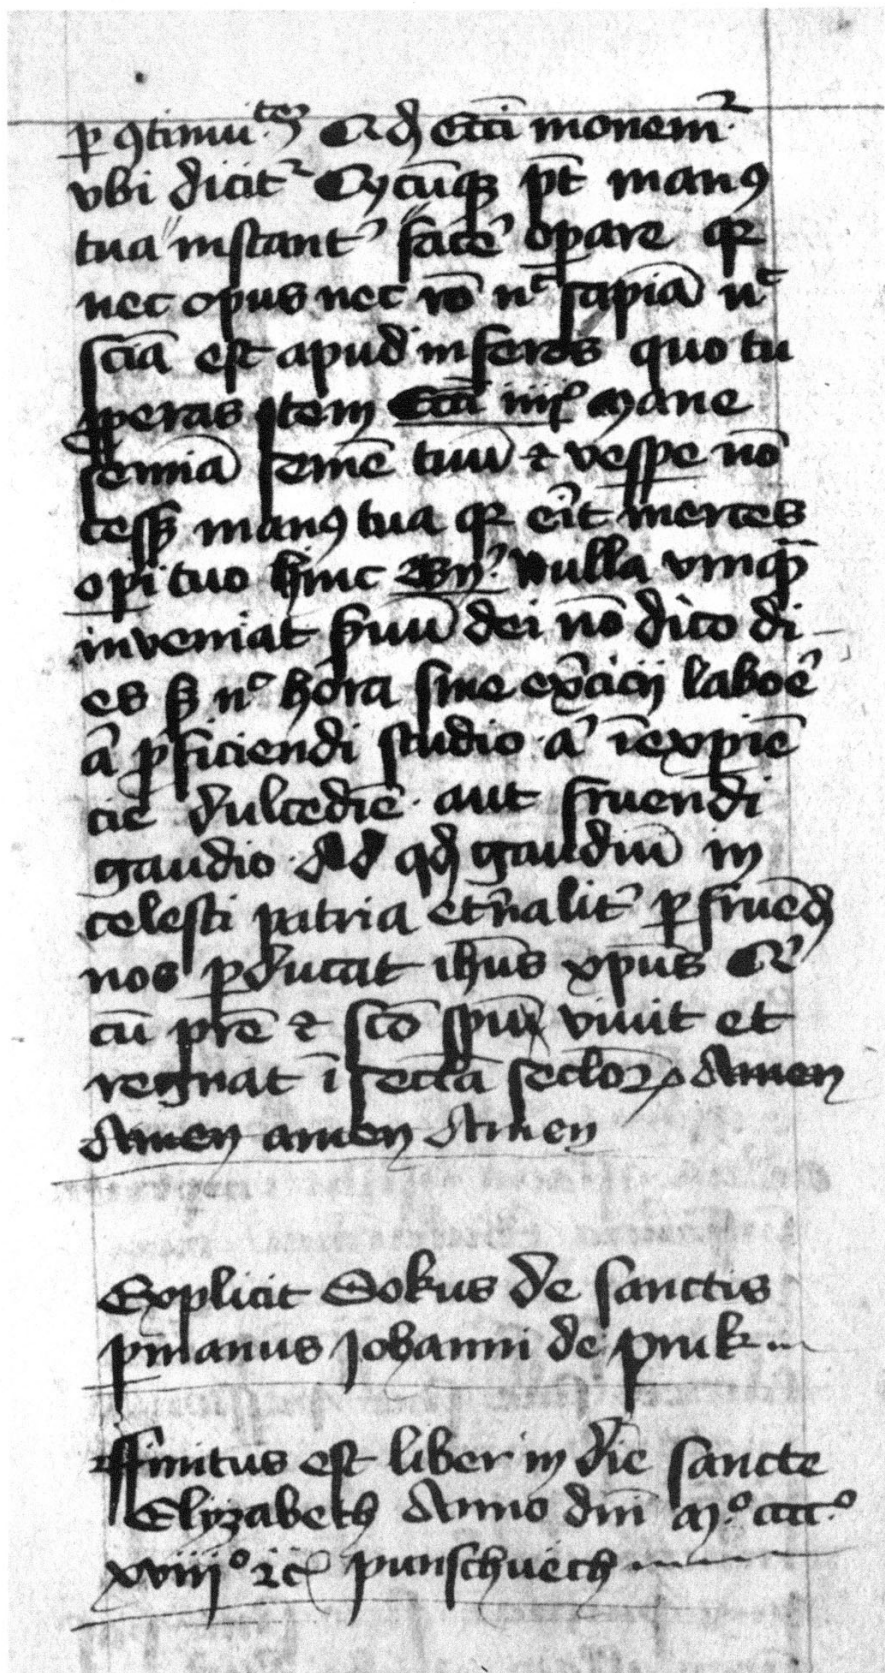 p ꝯtinui.tez Ad qd Ecci monemr
vbi dicitr Qꝺcūqꝫ pt manꝰ
tua instant' fac'e opare qꝛ
nec opus nec rō nc sapiā nc
sciā est apud inferos quo tu
ꝓperas Jtem Ecci Mane
semiā semē tuū ⁊ vesspe nō
cessꝫ manꝰ tua qꝛ erit merces
opi tuo hinc Nulla vmqā
inveniat suū dei nō dico di
es sꝫ nc hora sine exercicij laboē
a' ꝓficiendi studio a' īexpiē
cie dulcedīe aut fruendi
gaudio Ad qd gaudiū in
celesti patria et'nalit' pfruēd
nos pducat ihūs xpūs
cū prē ⁊ scō spū viuit et
regnat ī secla seclorꝝ Amen
Amen amen Amen
Explicit Sokus de sanctis
p manus Johanni de pruk
ffinitus est liber in die sancte
Elyzabeth Anno dni Mo cccco
xviijo ⁊c punschuech